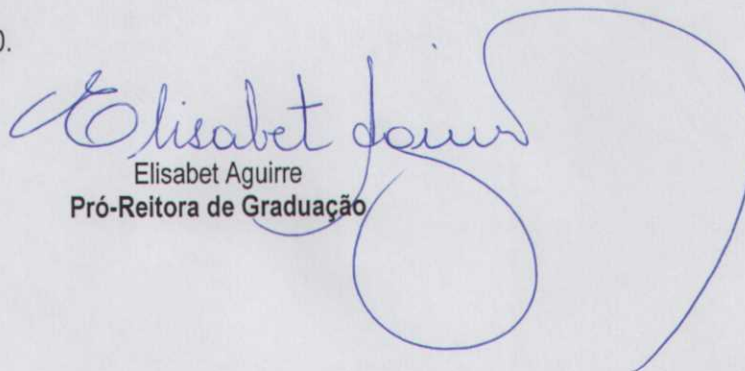 0.
Elisabet
Elisabet Aguirre
Pró-Reitora de Graduação